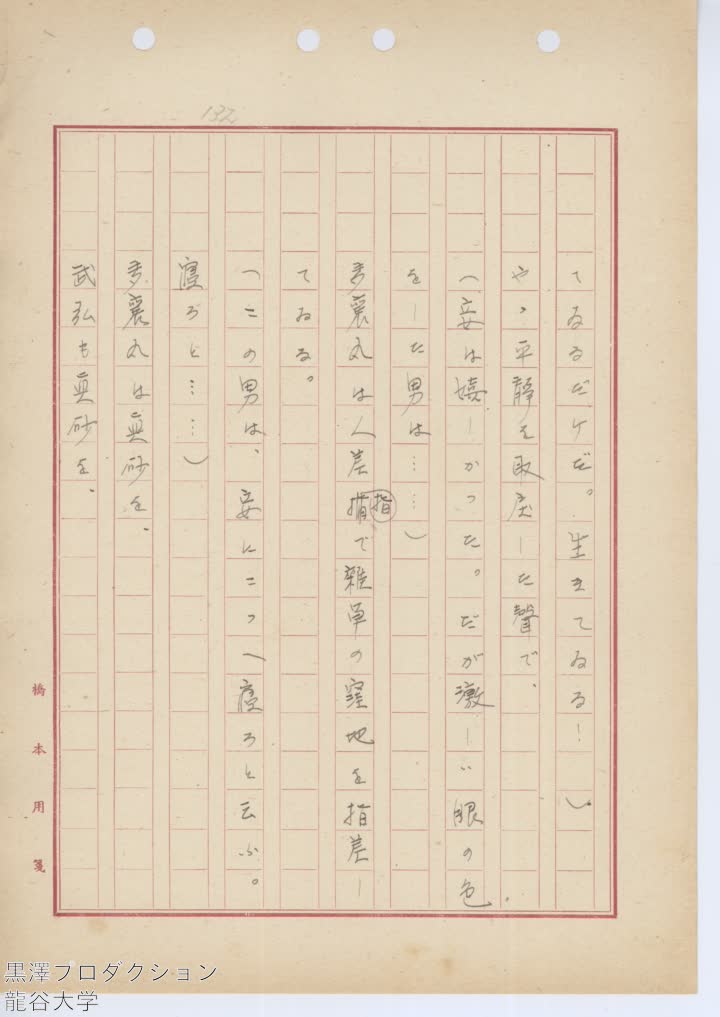 132
てゐるだケだ。生きてゐる！）
やゝ平静を取戻した聲で、
（妾は嬉しかった。だが激しい眼の色
をした男は……）
多襄丸は人差指で雑草の窪地を指差し
指
てゐる。
（この男は、妾にこっへ寝ろと云ふ。
寝ろと……）
多襄丸は眞砂を、
武弘も眞砂を、
橋本用箋
黒澤プロダクション
龍谷大学